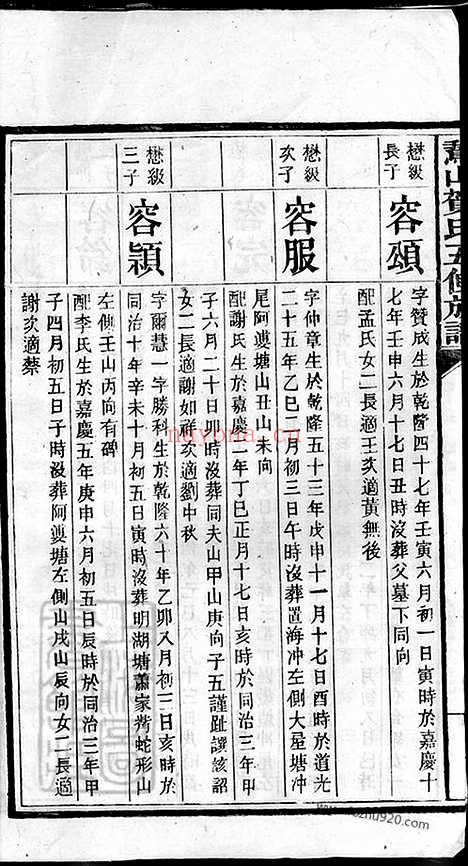 懋級
長子
容頌
字贊成生於乾隆四十七年壬寅六月初一日寅時於嘉慶十
七年壬申六月十七日丑時沒葬父墓下同向
配孟氏女二長適王次適黃無後
懋級
次子
容服
字仲章生於乾隆五十三年戊申十一月十七日酉時於道光
二十五年乙巳二月初三日午時沒葬置海冲左側大屋塘冲
尾阿婆塘山丑山未向
配謝氏生於嘉慶二年丁巳正月十七日亥時於同治三年甲
子六月二十日卯時沒葬同夫山甲山庚向子五謹趾讓該詔
女二長適謝如祥次適劉中秋
懋級
三子
容穎
字爾慧一字勝科生於乾隆六十年乙卯八月初二日亥時於
同治十年辛未十月初五日寅時沒葬明湖塘蕭家背蛇形山
左側壬山丙向有碑
配李氏生於嘉慶五年庚申六月初五日辰時於同治三年甲
子四月初五日子時沒葬阿婆塘左側山戌山辰向女二長適
謝次適蔡
nayona.cn
zhu920.com